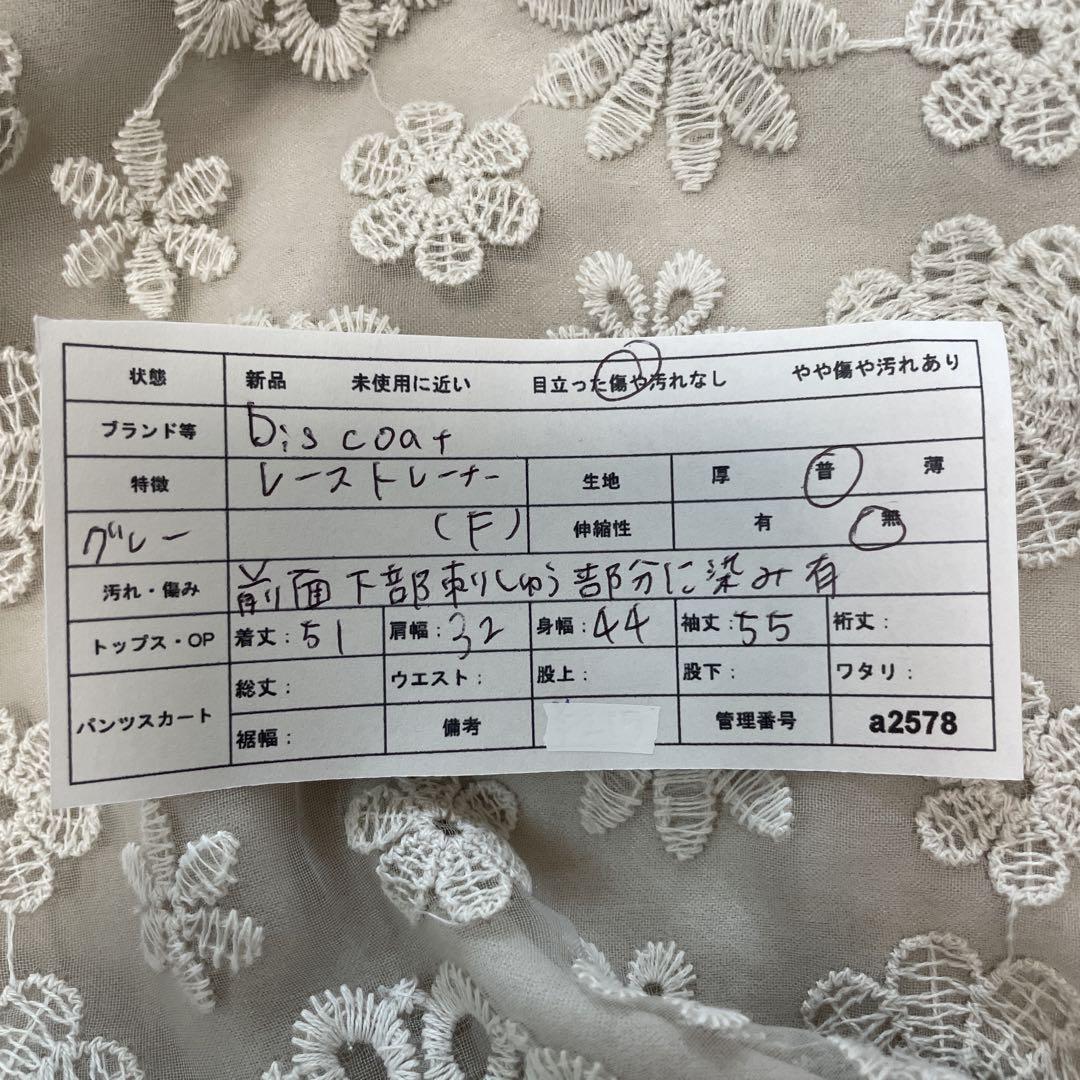 状態 新品 未使用に近い 目立った傷や汚れなし やや傷や汚れあり
ブランド等 Discoat
特徴 レーストレーナー 生地 厚 普 薄
グレー (F) 伸縮性 有 無
汚れ・傷み 前面下部刺しゅう部分に染み有
トップス・OP 着丈:51 肩幅:32 身幅:44 袖丈:55 裄丈:
パンツスカート 総丈: ウエスト: 股上: 股下: ワタリ:
裾幅: 備考 管理番号 a2578